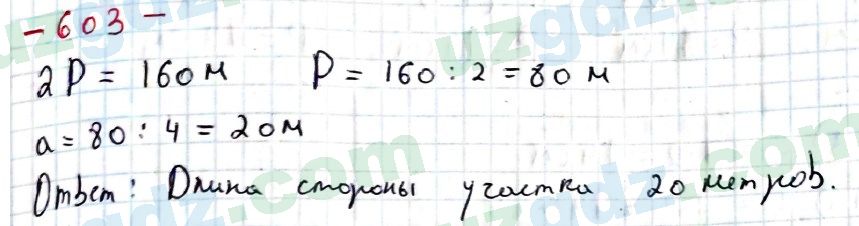 - 603 -
2P = 160 м P = 160 : 2 = 80 м
a = 80 : 4 = 20 м
Ответ: Длина стороны участка 20 метров.
uzgdz.com